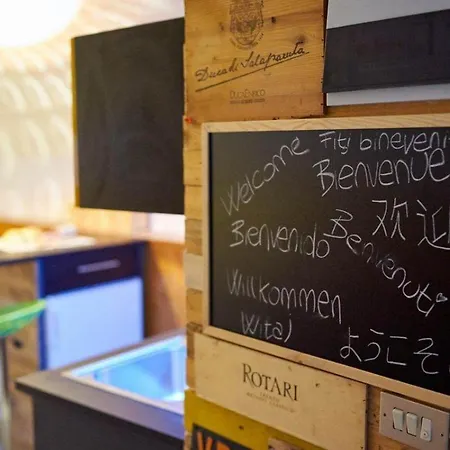 Duca di Salaparuta
DUCA ENRICO
Welcome
Fiți bineveni
Bienvenue
欢迎
Bienvenido
Benvenuti
Willkommen
Witaj
ようこそ
ROTARI